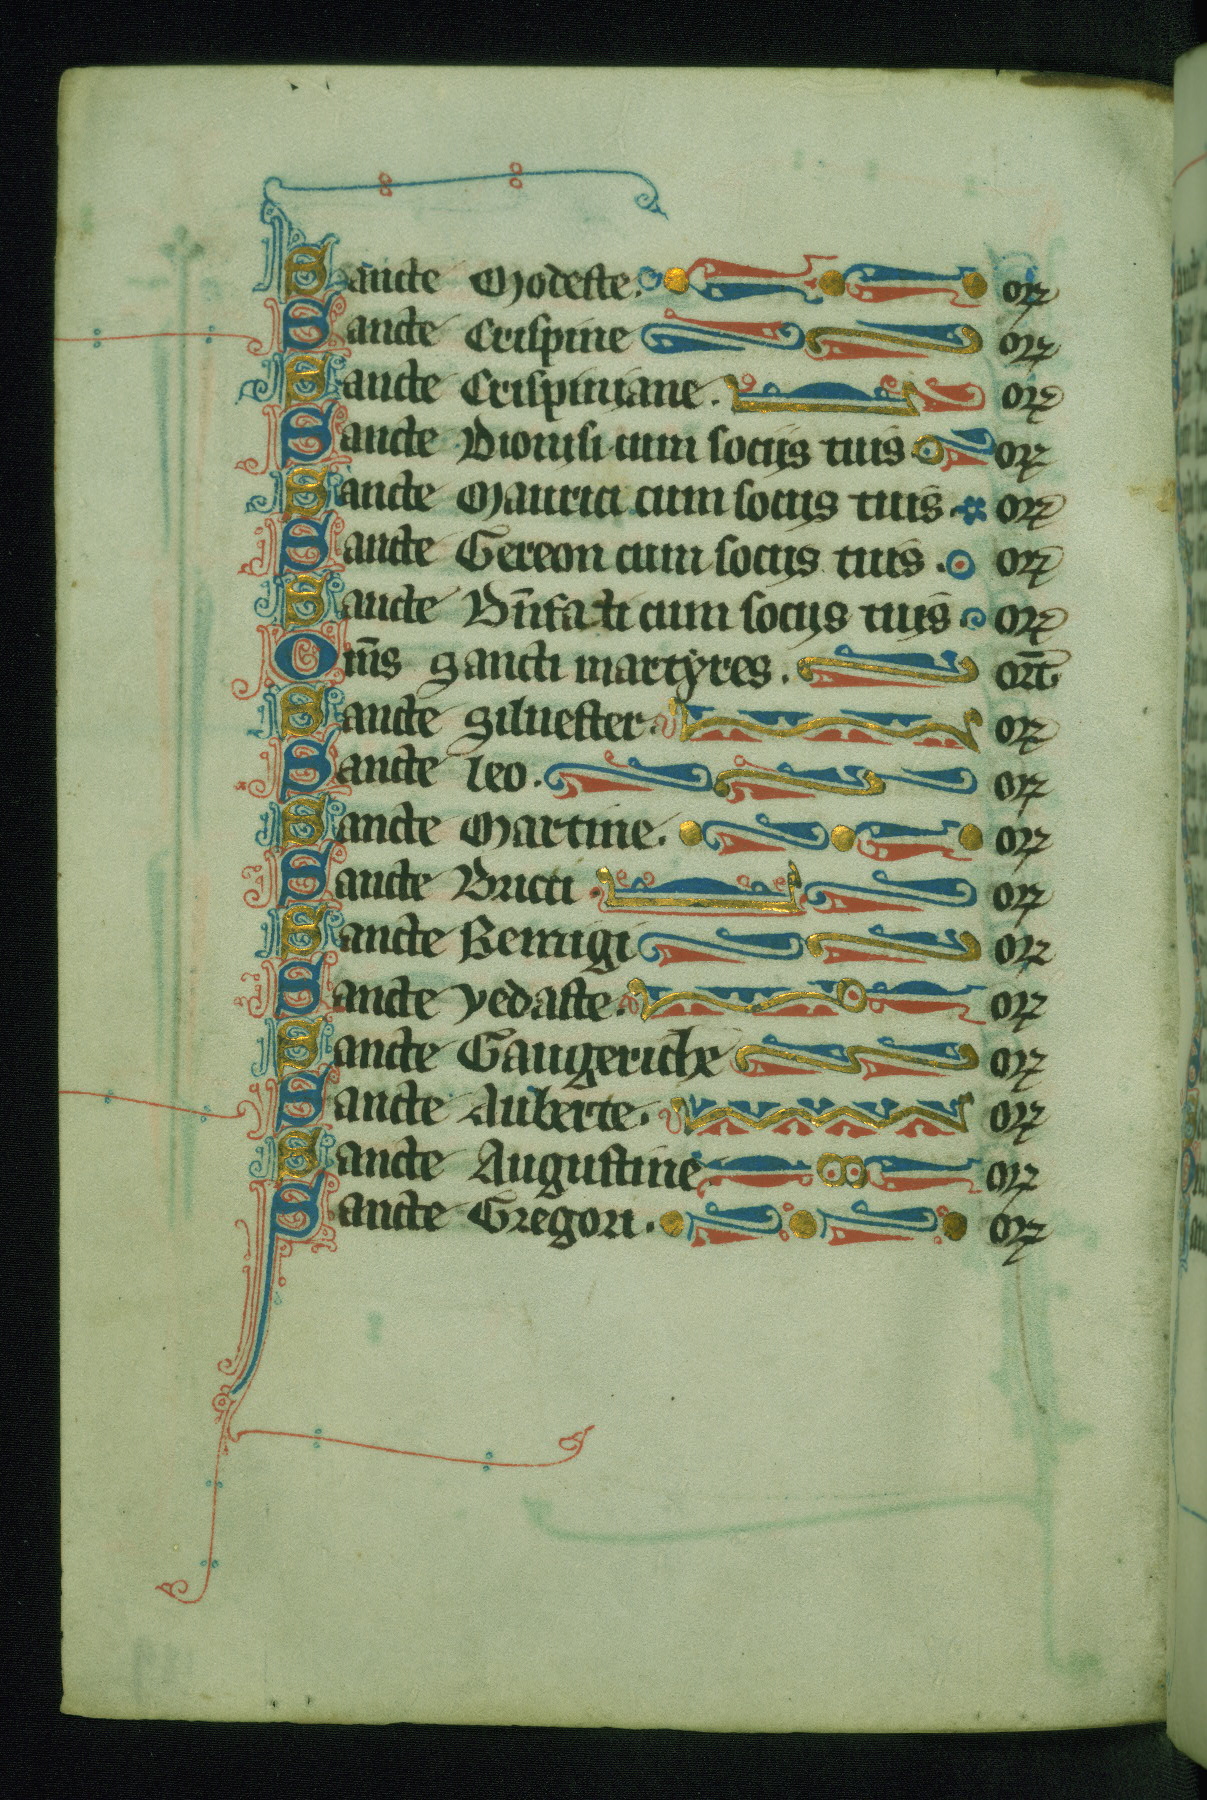 Sancte Modeste. or
Sancte Crispine or
Sancte Crispiniane. or
Sancte Dionisi cum sociis tuis or
Sancte Maurici cum sociis tuis. or
Sancte Gereon cum sociis tuis. or
Sancte Bn̄ifati cum sociis tuis or
Om̄s sancti martyres. or̄t
Sancte Siluester or
Sancte leo. or
Sancte Martine. or
Sancte Bricti. or
Sancte Remigi or
Sancte vedaste. or
Sancte Gaugeriche or
Sancte Auberte. or
Sancte Augustine or
Sancte Gregori. or